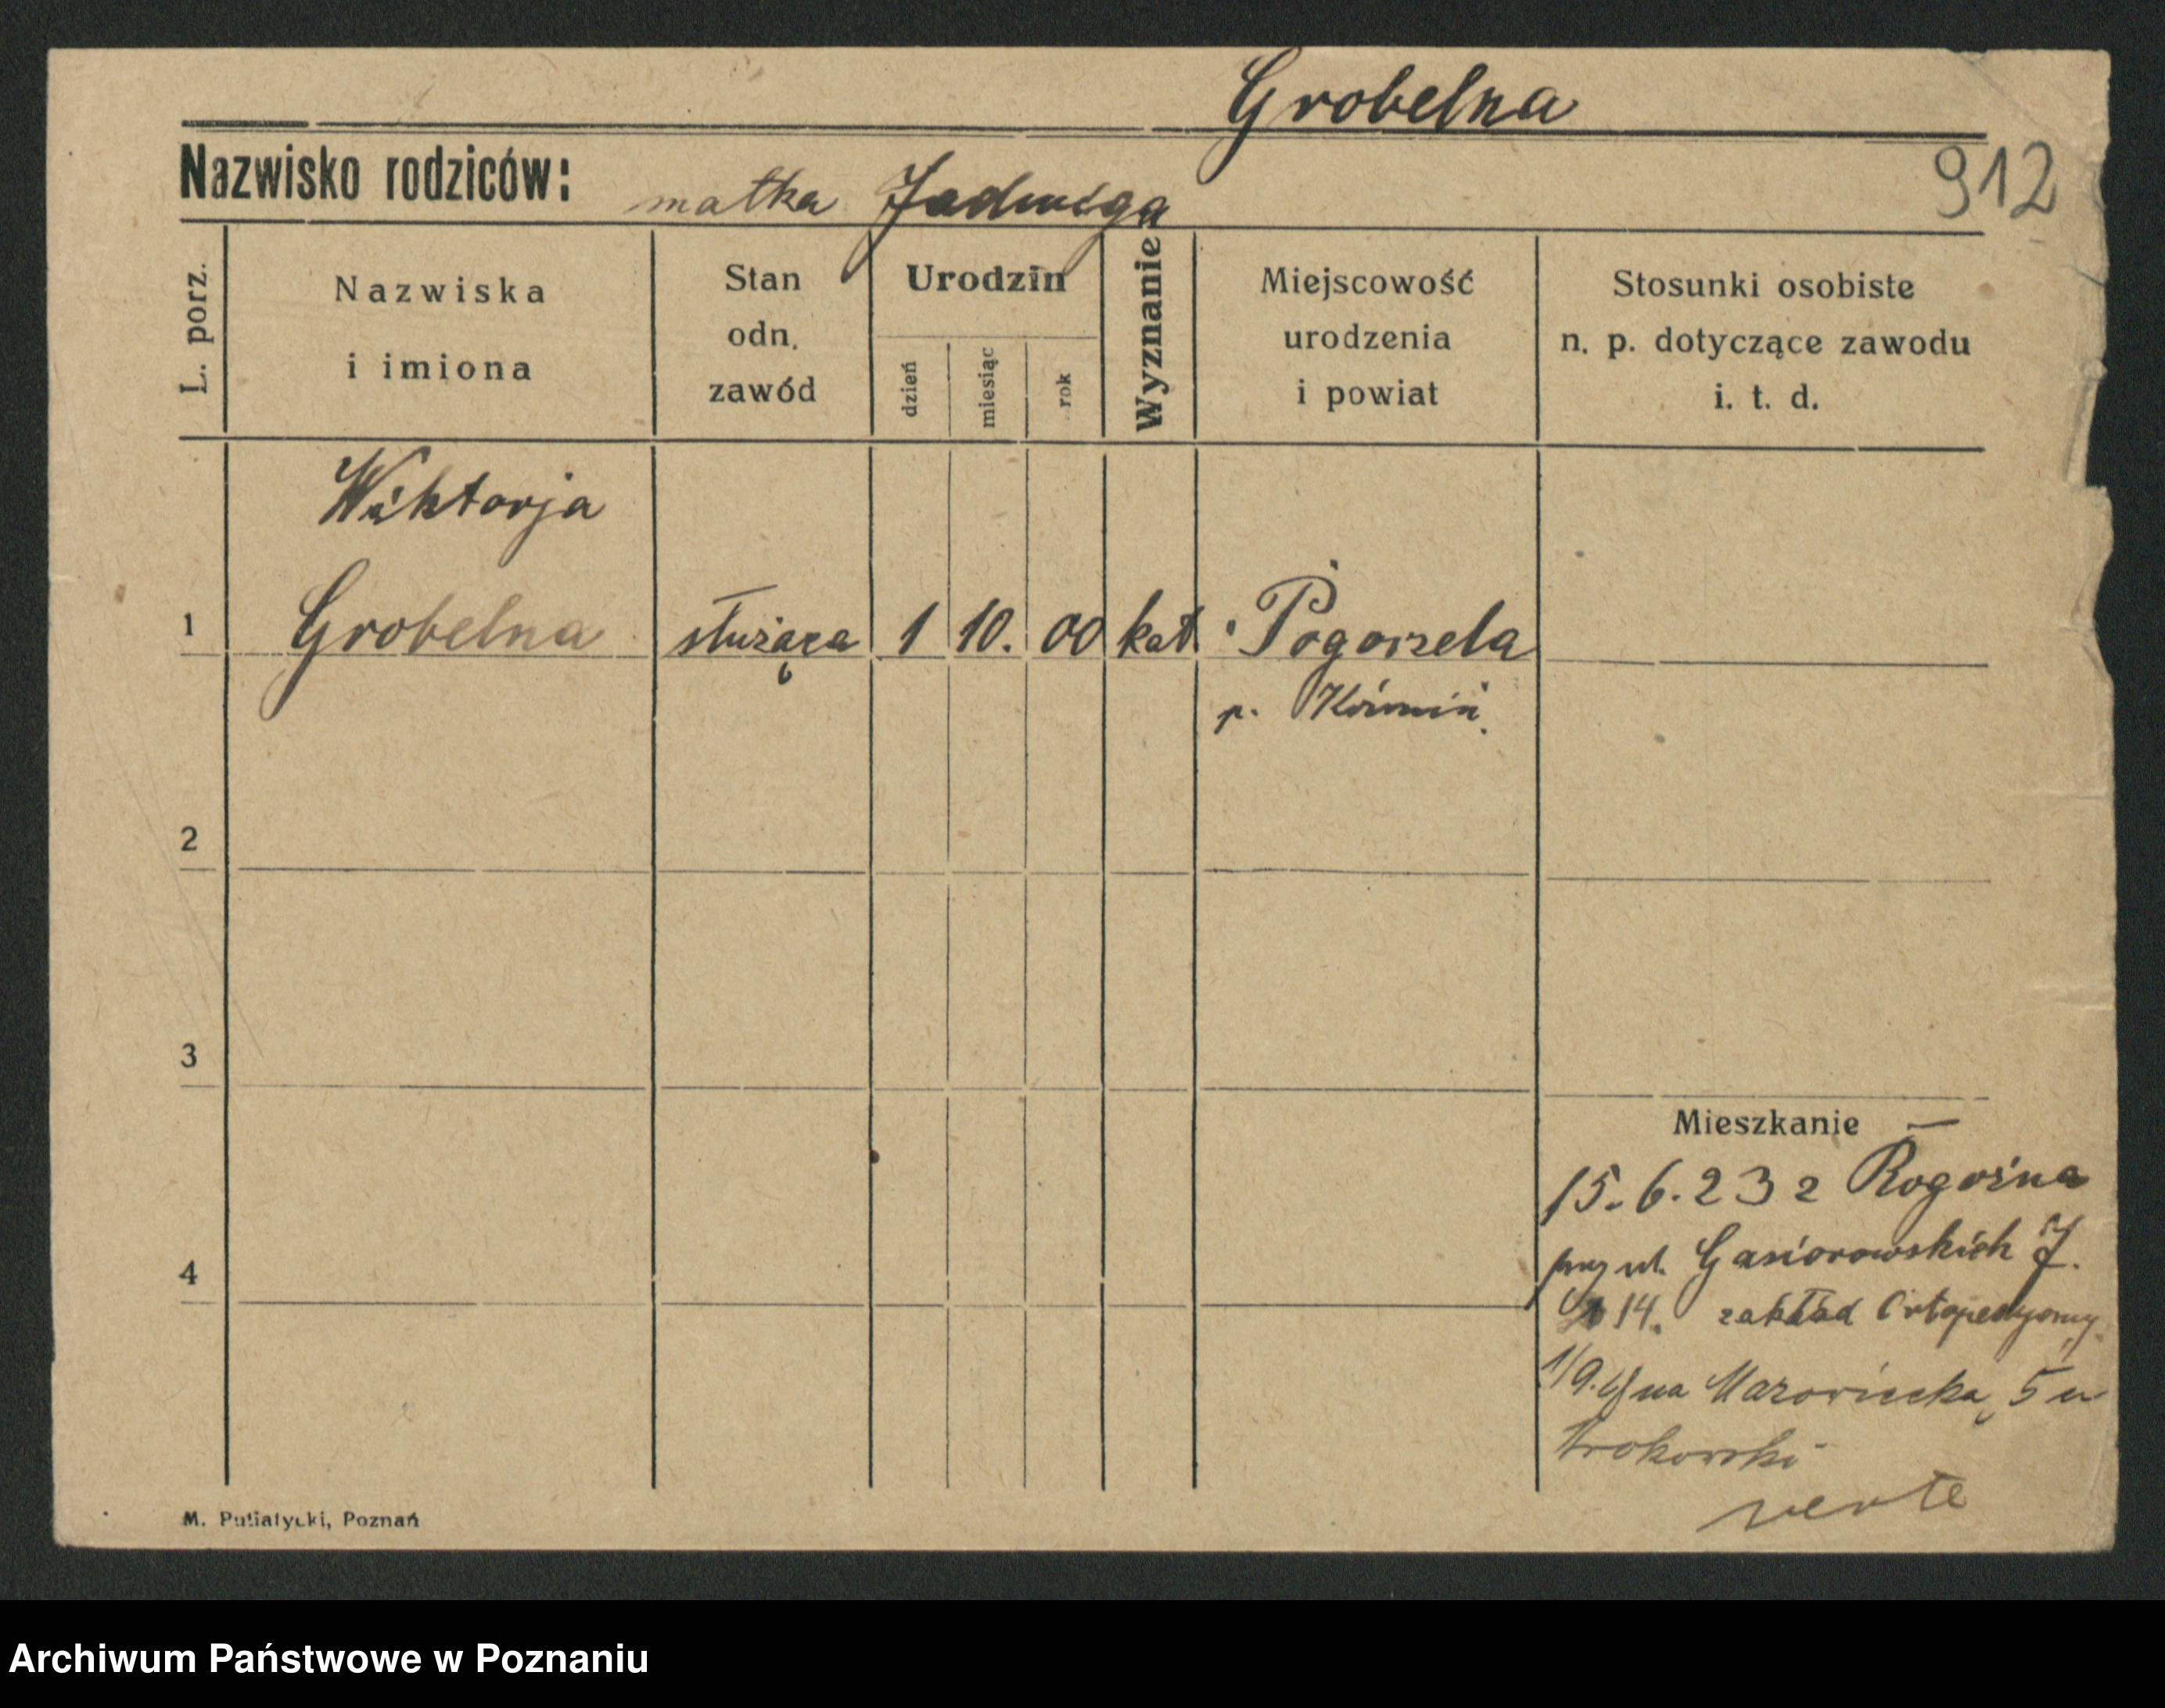 Grobelna
Nazwisko rodziców: matka Jadwiga
912
L. porz.
Nazwiska
i imiona
Stan
odn.
zawód
Urodzin
dzień
miesiąc
rok
Wyznanie
Miejscowość
urodzenia
i powiat
Stosunki osobiste
n. p. dotyczące zawodu
i. t. d.
Wiktorja
1 Grobelna służąca 1 10. 00 kat. Pogorzela
p. Koźmin
2
3
Mieszkanie
15.6.23 z Rogoźna
przy ul. Gąsiorowskich J.
4
14. zakład Ortopedyczny
1/9. na Mazowiecką 5 u
verte
M. Putiatycki, Poznań
Archiwum Państwowe w Poznaniu